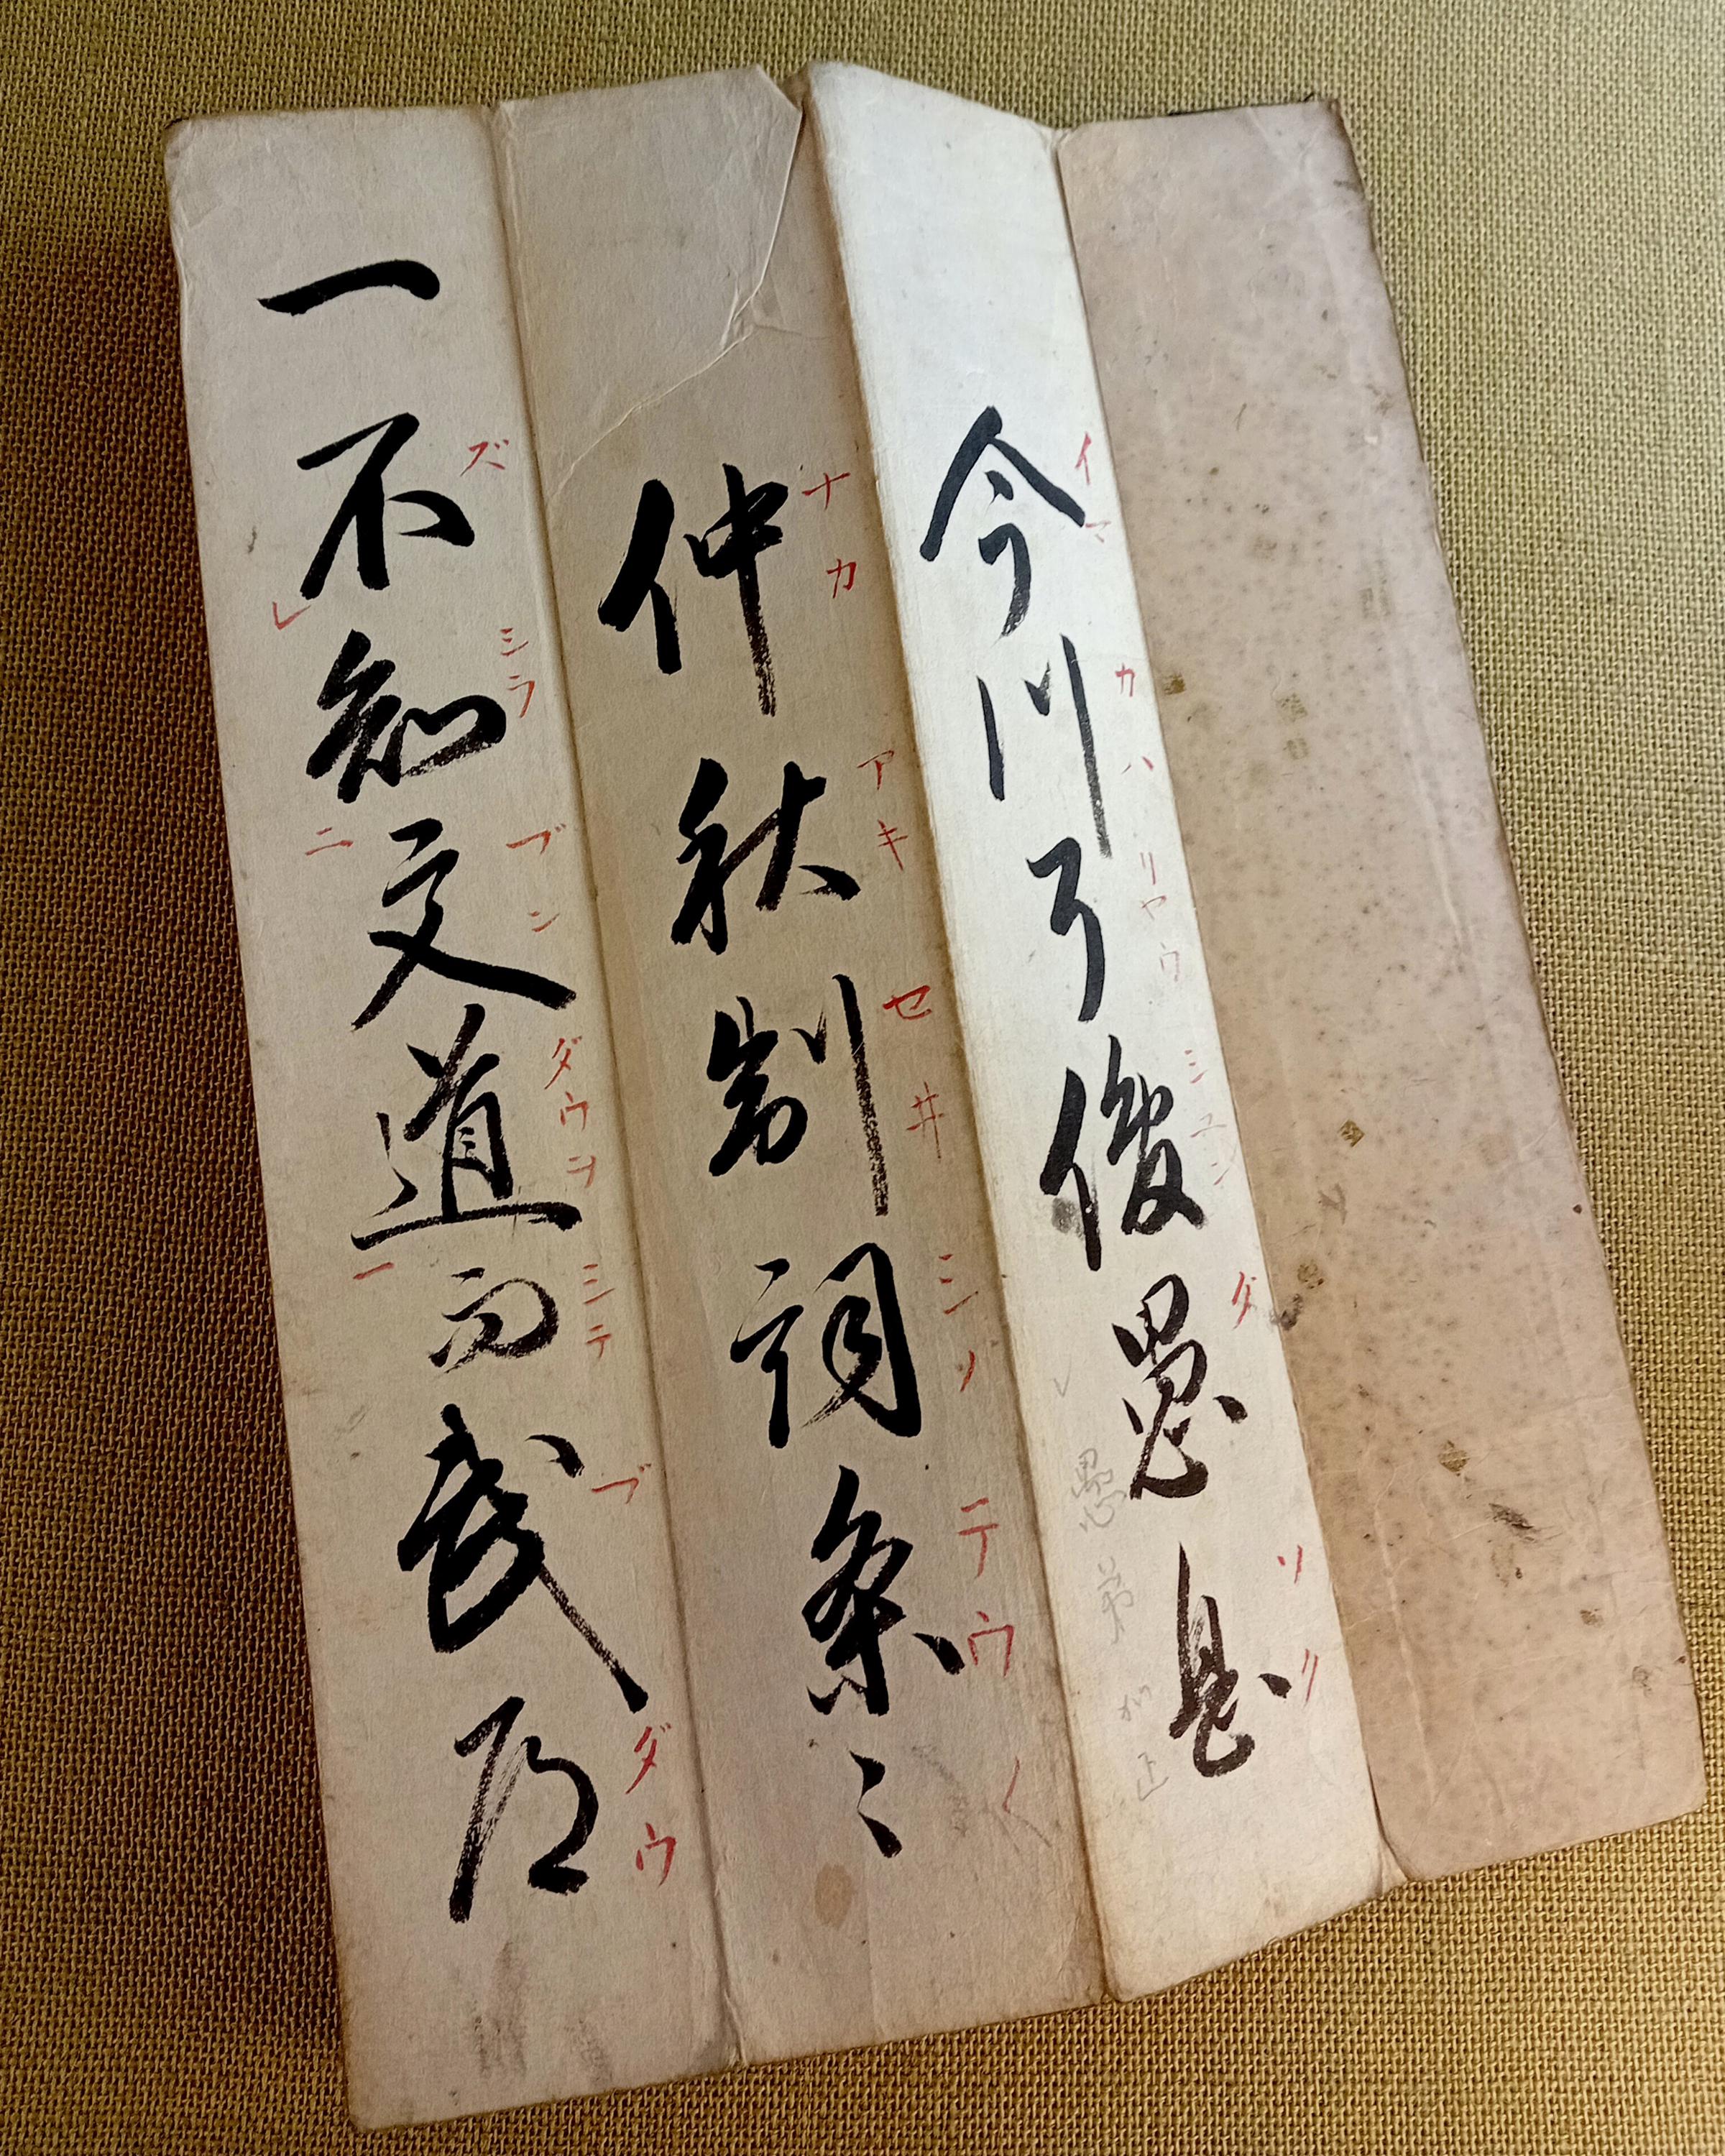 今川了俊愚息
仲秋制詞条々
一不知文道而武道
イマ カハ リヤウ シユン グ ソク
愚弟 正
ナカ アキ セヰ シノ テウ〱
ズ シラ ブン ダウヲ シテ ブ ダウ
レ 二 一